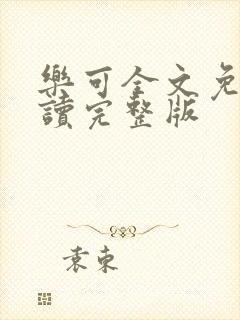 樂可全文免
讀完整版
袁東